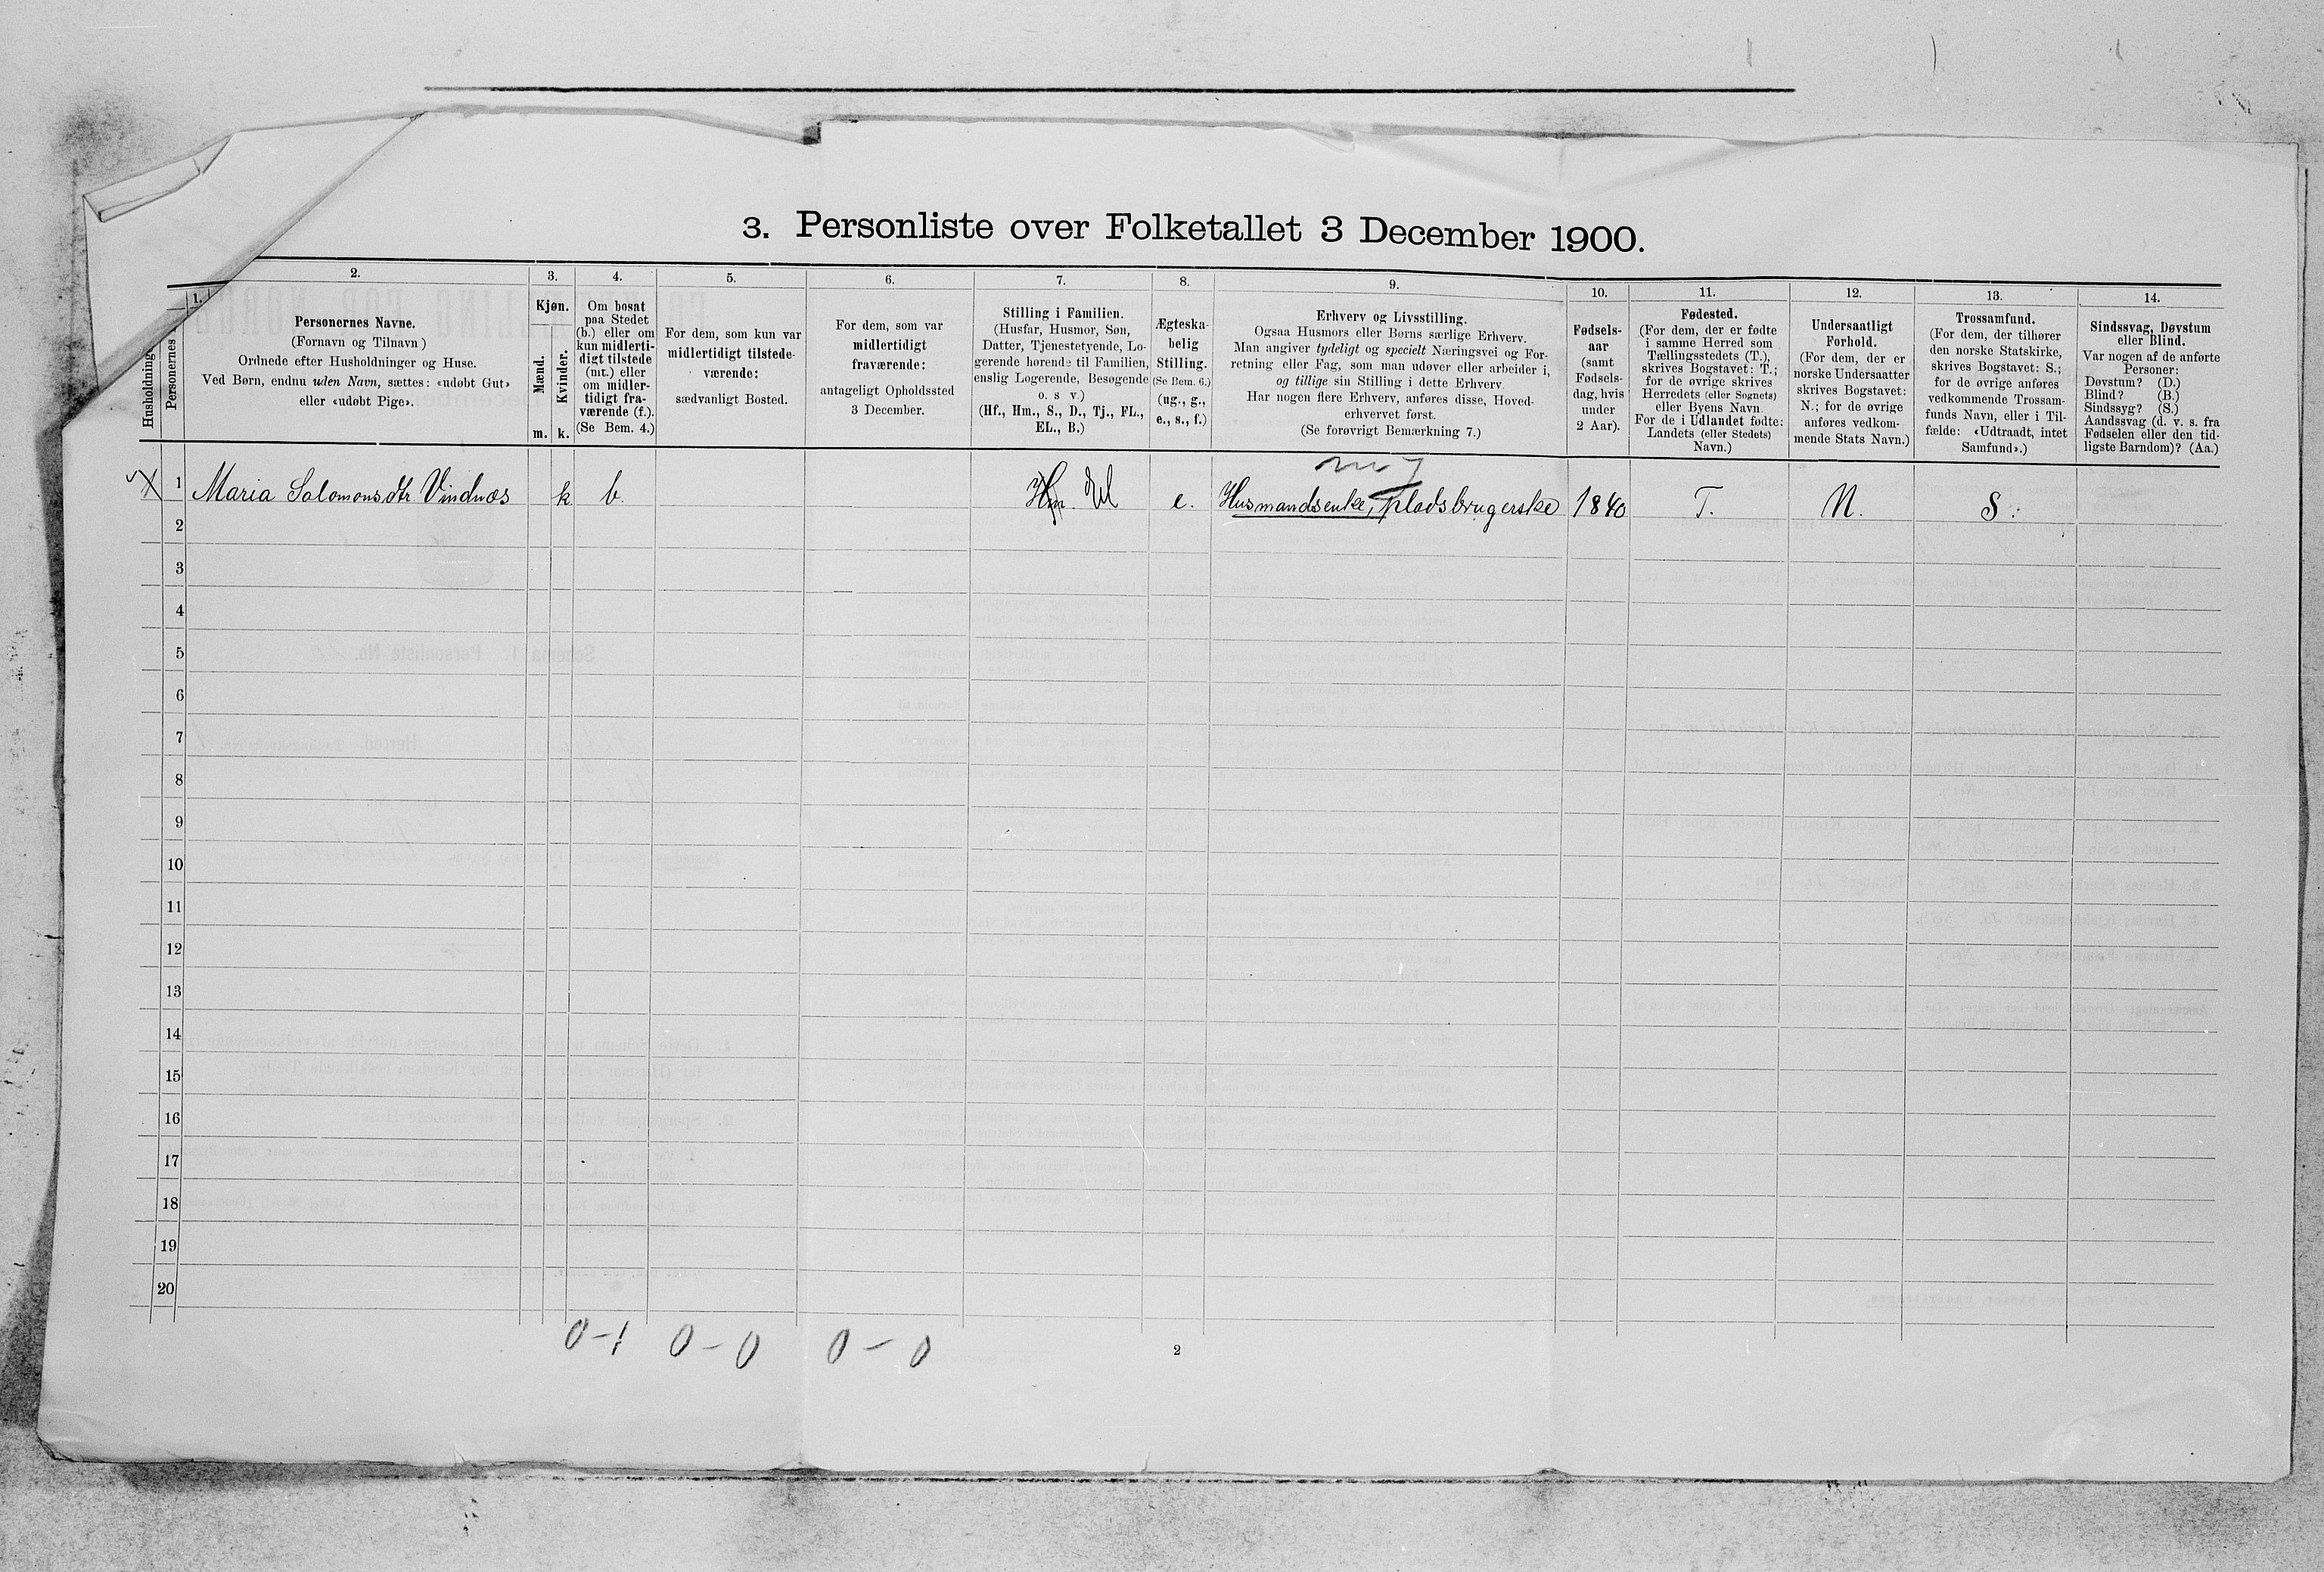 3. Personliste over Folketallet 3 December 1900.
1.
2.
3.
4.
5.
6.
7.
8.
9.
10.
11.
12.
13.
14.
Husholdninger
Personernes
Personernes Navne.
(Fornavn og Tilnavn)
Ordnede efter Husholdninger og Huse.
Ved Børn, endnu uden Navn, sættes: «udøbt Gut»
eller «udøbt Pige».
Kjøn.
Mænd.
Kvinder.
m. k.
Om bosat
paa Stedet
(b.) eller om
kun midlerti-
digt tilstede
(mt.) eller
om midler-
tidigt fra-
værende (f.).
(Se Bem. 4.)
For dem, som kun var
midlertidigt tilstede-
værende:
sædvanligt Bosted.
For dem, som var
midlertidigt
fraværende:
antageligt Opholdssted
3 December.
Stilling i Familien.
(Husfar, Husmor, Søn,
Datter, Tjenestetyende, Lo-
gerende hørende til Familien,
enslig Logerende, Besøgende
o. s v.)
(Hf., Hm., S., D., Tj., FL.,
EL., B.)
Ægteska-
belig
Stilling.
(Se Bem. 6.)
(ug., g.,
e., s., f.)
Erhverv og Livsstilling.
Ogsaa Husmors eller Børns særlige Erhverv.
Man angiver tydeligt og specielt Næringsvei og For-
retning eller Fag, som man udøver eller arbeider i,
og tillige sin Stilling i dette Erhverv.
Har nogen flere Erhverv, anføres disse, Hoved-
erhvervet først.
(Se forøvrigt Bemærkning 7.)
Fødsels-
aar
(samt
Fødsels-
dag, hvis
under
2 Aar).
Fødested.
(For dem, der er fødte
i samme Herred som
Tællingsstedets (T.),
skrives Bogstavet: T.;
for de øvrige skrives
Herredets (eller Sognets)
eller Byens Navn
For de i Udlandet fødte:
Landets (eller Stedets)
Navn.)
Undersaatligt
Forhold.
(For dem, der er
norske Undersaatter
skrives Bogstavet:
N.; for de øvrige
anføres vedkom-
mende Stats Navn.)
Trossamfund.
(For dem, der tilhører
den norske Statskirke,
skrives Bogstavet: S.;
for de øvrige anføres
vedkommende Trossam-
funds Navn, eller i Til-
fælde: «Udtraadt, intet
Samfund».)
Sindssvag, Døvstum
eller Blind.
Var nogen af de anførte
Personer:
Døvstum? (D.)
Blind? (B.)
Sindssyg? (S.)
Aandssvag (d. v. s. fra
Fødselen eller den tid-
ligste Barndom)? (Aa.)
1 Maria Salomonsdtr Vindnæs k b. Hm. El e. Husmandsenke, pladsbrugerske 1840 T. N. S.
2
3
4
5
6
7
8
9
10
11
12
13
14
15
16
17
18
19
20
0-1 0-0 0-0
2